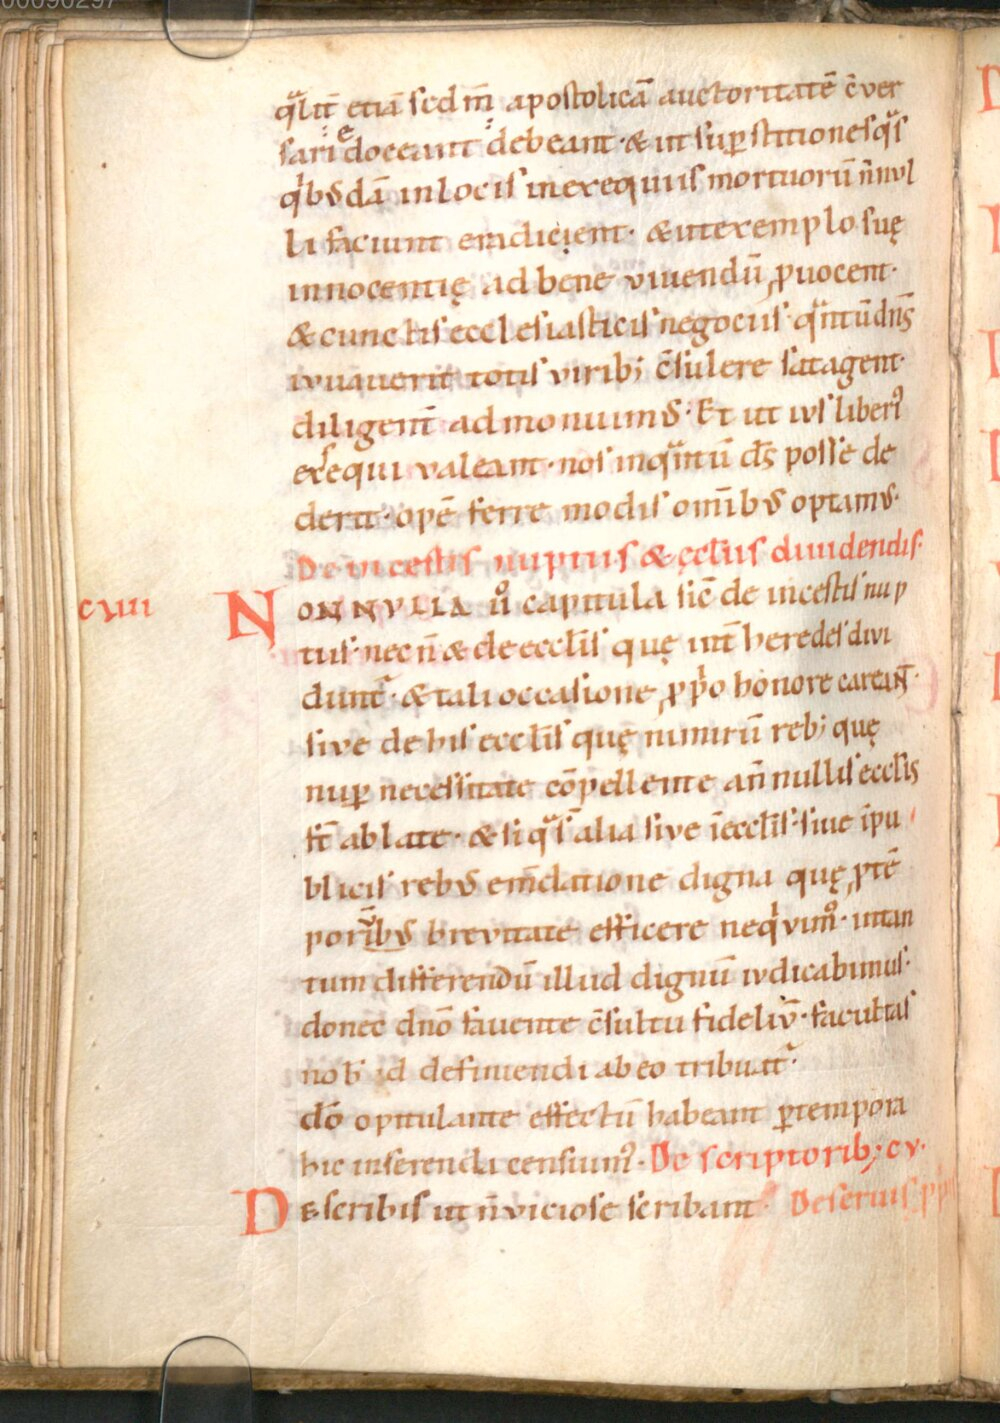 q̃lit̄ etiā sed m̄ apostolicā auctoritatē c̄ver
sari doceant debeant · & ut sup̱stitiones q̃s
qͥbꝰdā in locis in exequiis mortuorū n̄nvl
li faciunt eradicient · & ut exemplo suę
innocentię ad bene vivendū ꝓvocent ·
& cunctis ecclesiasticis negociis · q̃ntū dn̄s
iuuaverit totis virib; c̄sulere satagent ·
diligent̄ admonuimꝰ · Et ut ivs liberi᾽
exsequi valeant · nos inq̃ntū ds̄ posse de
derit · opē ferre modis omībꝰ optamꝰ ·
De incestis nuptiis & ęcclīis dividendis ·
cviii NONNVLLA ů capitula sic̄ de incestis nup
tiis · nec n̄ & de ecclīis quę int̄ heredes divi
dunt᾽ · & tali occasione ꝓpͥo honore careant ·
sive de his ecclīis quę nimirū reb; quę
nup̱ necessitate cōpellente an̄ nullis ecclīis
st̄ ablatę · & si q̃s alia sive ī ecclīis · sive ī pu
blicis rebꝰ em̄datione digna quę ꝓ tē
poribꝰ brevitate efficere neqͥvimꝰ · in tan
tum differendū illud dignū iudicabimus ·
donec dnō favente c̄sultu fideliū · facultas
nob̄ id definiendi ab eo tribuat᾽ ·
dō opitulante effectū habeant p̱ tempora
hic inserenda censuimꝰ · De scriptorib; cv ·
De scribis ut n̄ viciose scribant · De servis pp